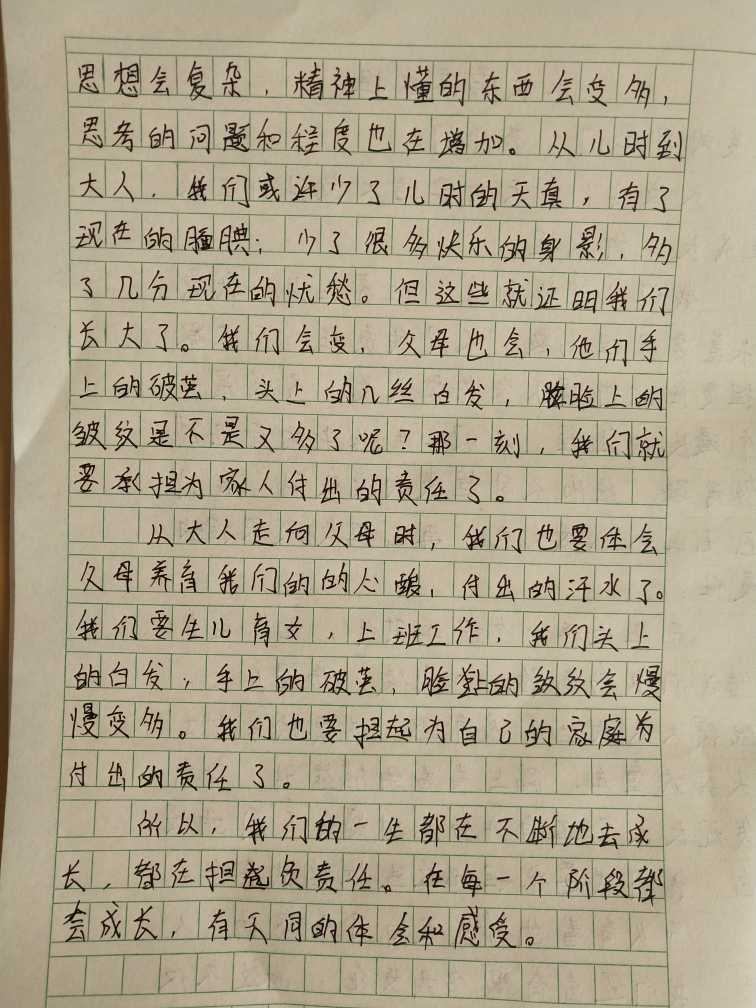 思想会复杂，精神上懂的东西会变多，
思考的问题和程度也在增加。从儿时到
大人，我们或许少了儿时的天真，有了
现在的腼腆；少了很多快乐的身影，多
了几分现在的忧愁。但这些就证明我们
长大了。我们会变，父母也会，他们手
上的破茧，头上的几丝白发，脸上的
皱纹是不是又多了呢？那一刻，我们就
要承担为家人付出的责任了。
从大人走向父母时，我们也要体会
父母养育我们的的心酸，付出的汗水了。
我们要生儿育女，上班工作，我们头上
的白发，手上的破茧，脸上的皱纹会慢
慢变多。我们也要担起为自己的家庭为
付出的责任了。
所以，我们的一生都在不断地去成
长，都在担负责任。在每一个阶段都
会成长，有不同的体会和感受。